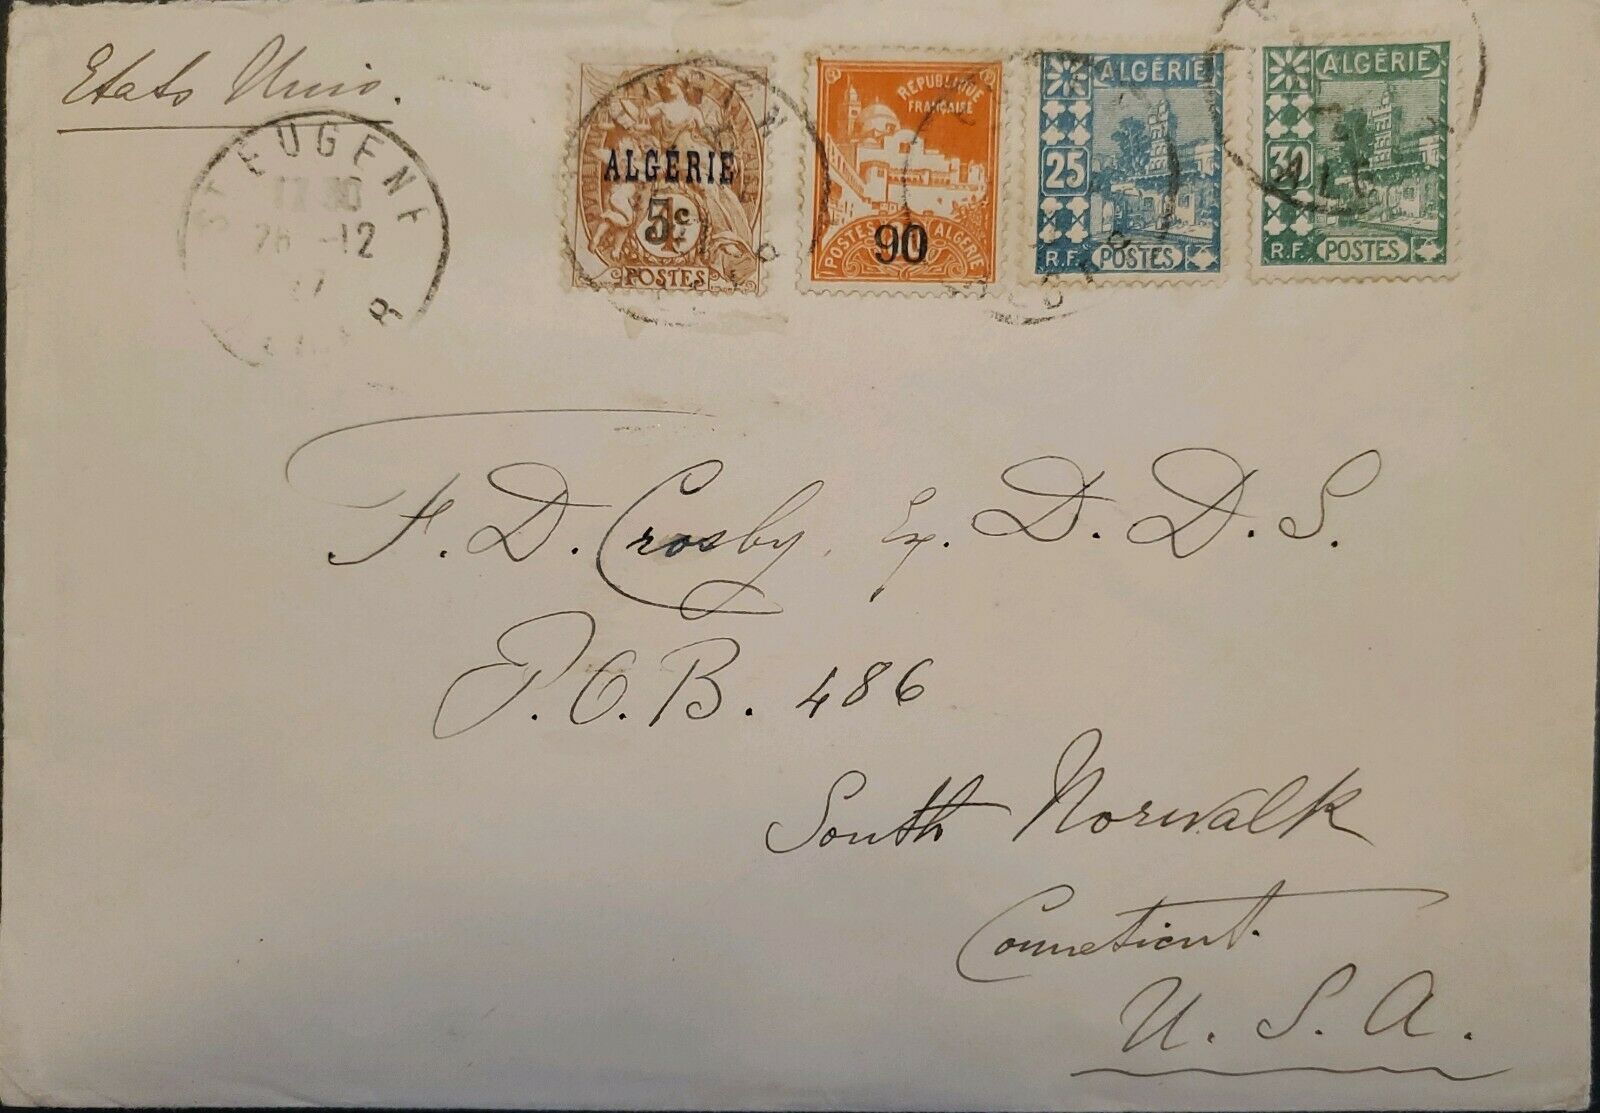 Etats Unis.
ST EUGENE
17 30
26 -12
27
ALGER
ALGÉRIE
5c
POSTES
RÉPUBLIQUE
FRANÇAISE
POSTES ALGÉRIE
90
ALGÉRIE
25
R.F. POSTES
ALGÉRIE
30
R.F. POSTES
F. D. Crosby, D. D. S.
P.O.B. 486
South Norwalk
Conneticut.
U. S. A.